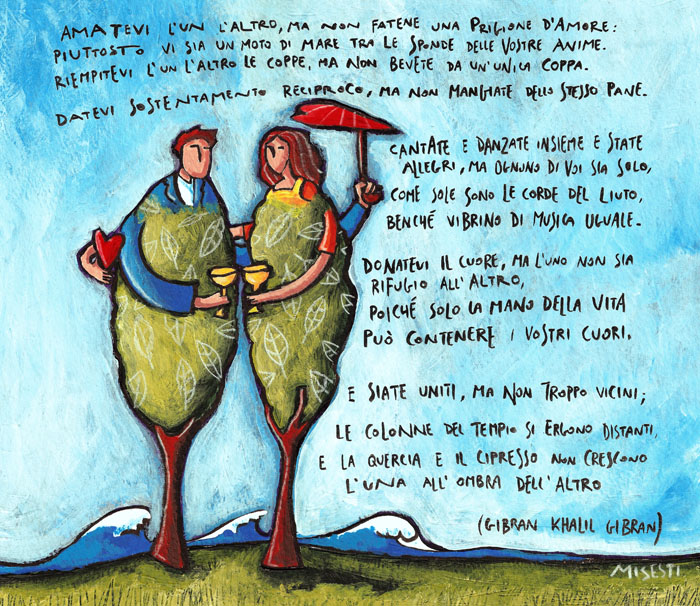 AMATEVI L'UN L'ALTRO, MA NON FATENE UNA PRIGIONE D'AMORE:
PIUTTOSTO VI SIA UN MOTO DI MARE TRA LE SPONDE DELLE VOSTRE ANIME.
RIEMPITEVI L'UN L'ALTRO LE COPPE, MA NON BEVETE DA UN'UNICA COPPA.
DATEVI SOSTENTAMENTO RECIPROCO, MA NON MANGIATE DELLO STESSO PANE.
CANTATE E DANZATE INSIEME E STATE
ALLEGRI, MA OGNUNO DI VOI SIA SOLO,
COME SOLE SONO LE CORDE DEL LIUTO,
BENCHÉ VIBRINO DI MUSICA UGUALE.
DONATEVI IL CUORE, MA L'UNO NON SIA
RIFUGIO ALL'ALTRO,
POICHÉ SOLO LA MANO DELLA VITA
PUÒ CONTENERE I VOSTRI CUORI.
E SIATE UNITI, MA NON TROPPO VICINI;
LE COLONNE DEL TEMPIO SI ERGONO DISTANTI,
E LA QUERCIA E IL CIPRESSO NON CRESCONO
L'UNA ALL'OMBRA DELL'ALTRO
(GIBRAN KHALIL GIBRAN)
MISESTI